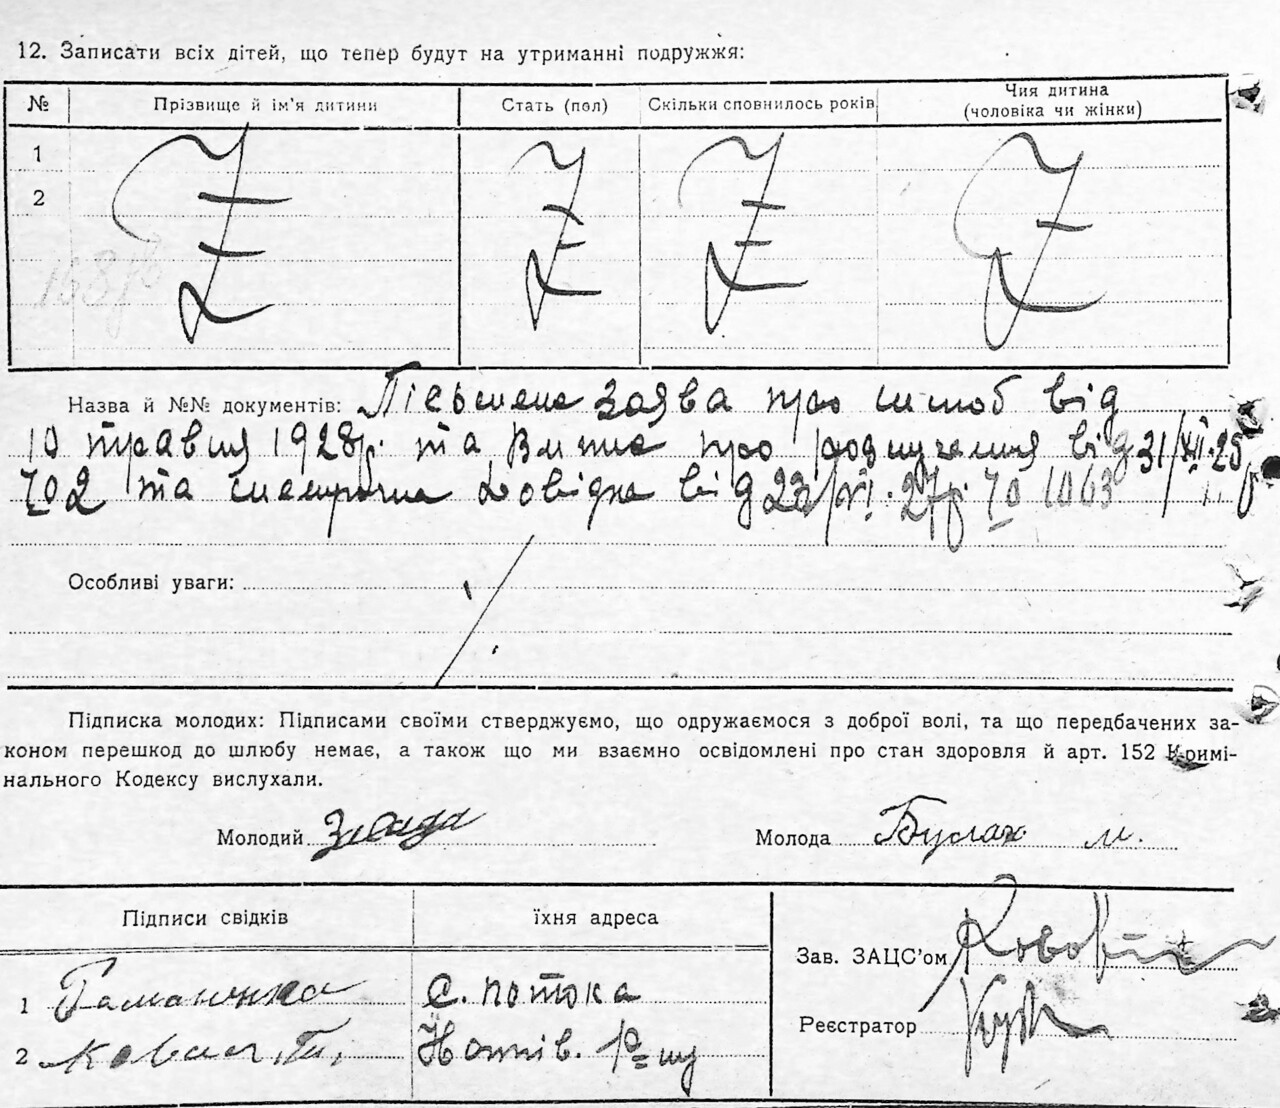 12. Записати всіх дітей, що тепер будут на утриманні подружжя:
№ Прізвище й ім'я дитини Стать (пол) Скільки сповнилось років Чия дитина
(чоловіка чи жінки)
1
2
Назва й №№ документів: заява про шлюб від
10 травня 1928р. та про від 31/XII.25
702 та довідка від 23/XI.27р. 1063
Особливі уваги:
Підписка молодих: Підписами своїми стверджуємо, що одружаємося з доброї волі, та що передбачених за-
коном перешкод до шлюбу немає, а також що ми взаємно освідомлені про стан здоровля й арт. 152 Кримі-
нального Кодексу вислухали.
Молодий Молода Булах М.
Підписи свідків їхня адреса
Зав. ЗАЦС'ом
1 с. Потока
Реєстратор
2 Р-ну